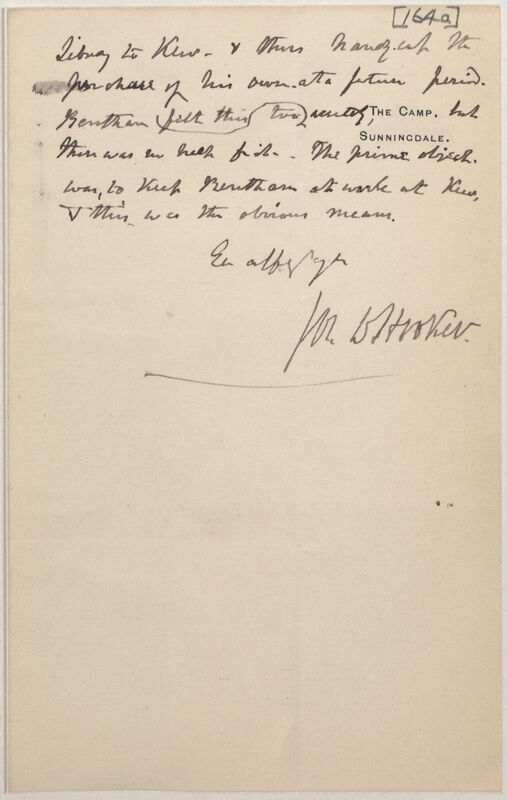 [164a]
Library to Kew. & thus handycap the
purchase of his own at a future period.
Bentham felt this too acutely, but
THE CAMP,
SUNNINGDALE.
there was no help for it. The prime object
was, to keep Bentham at work at Kew,
& this was the obvious means.
Ever
Jos D Hooker.